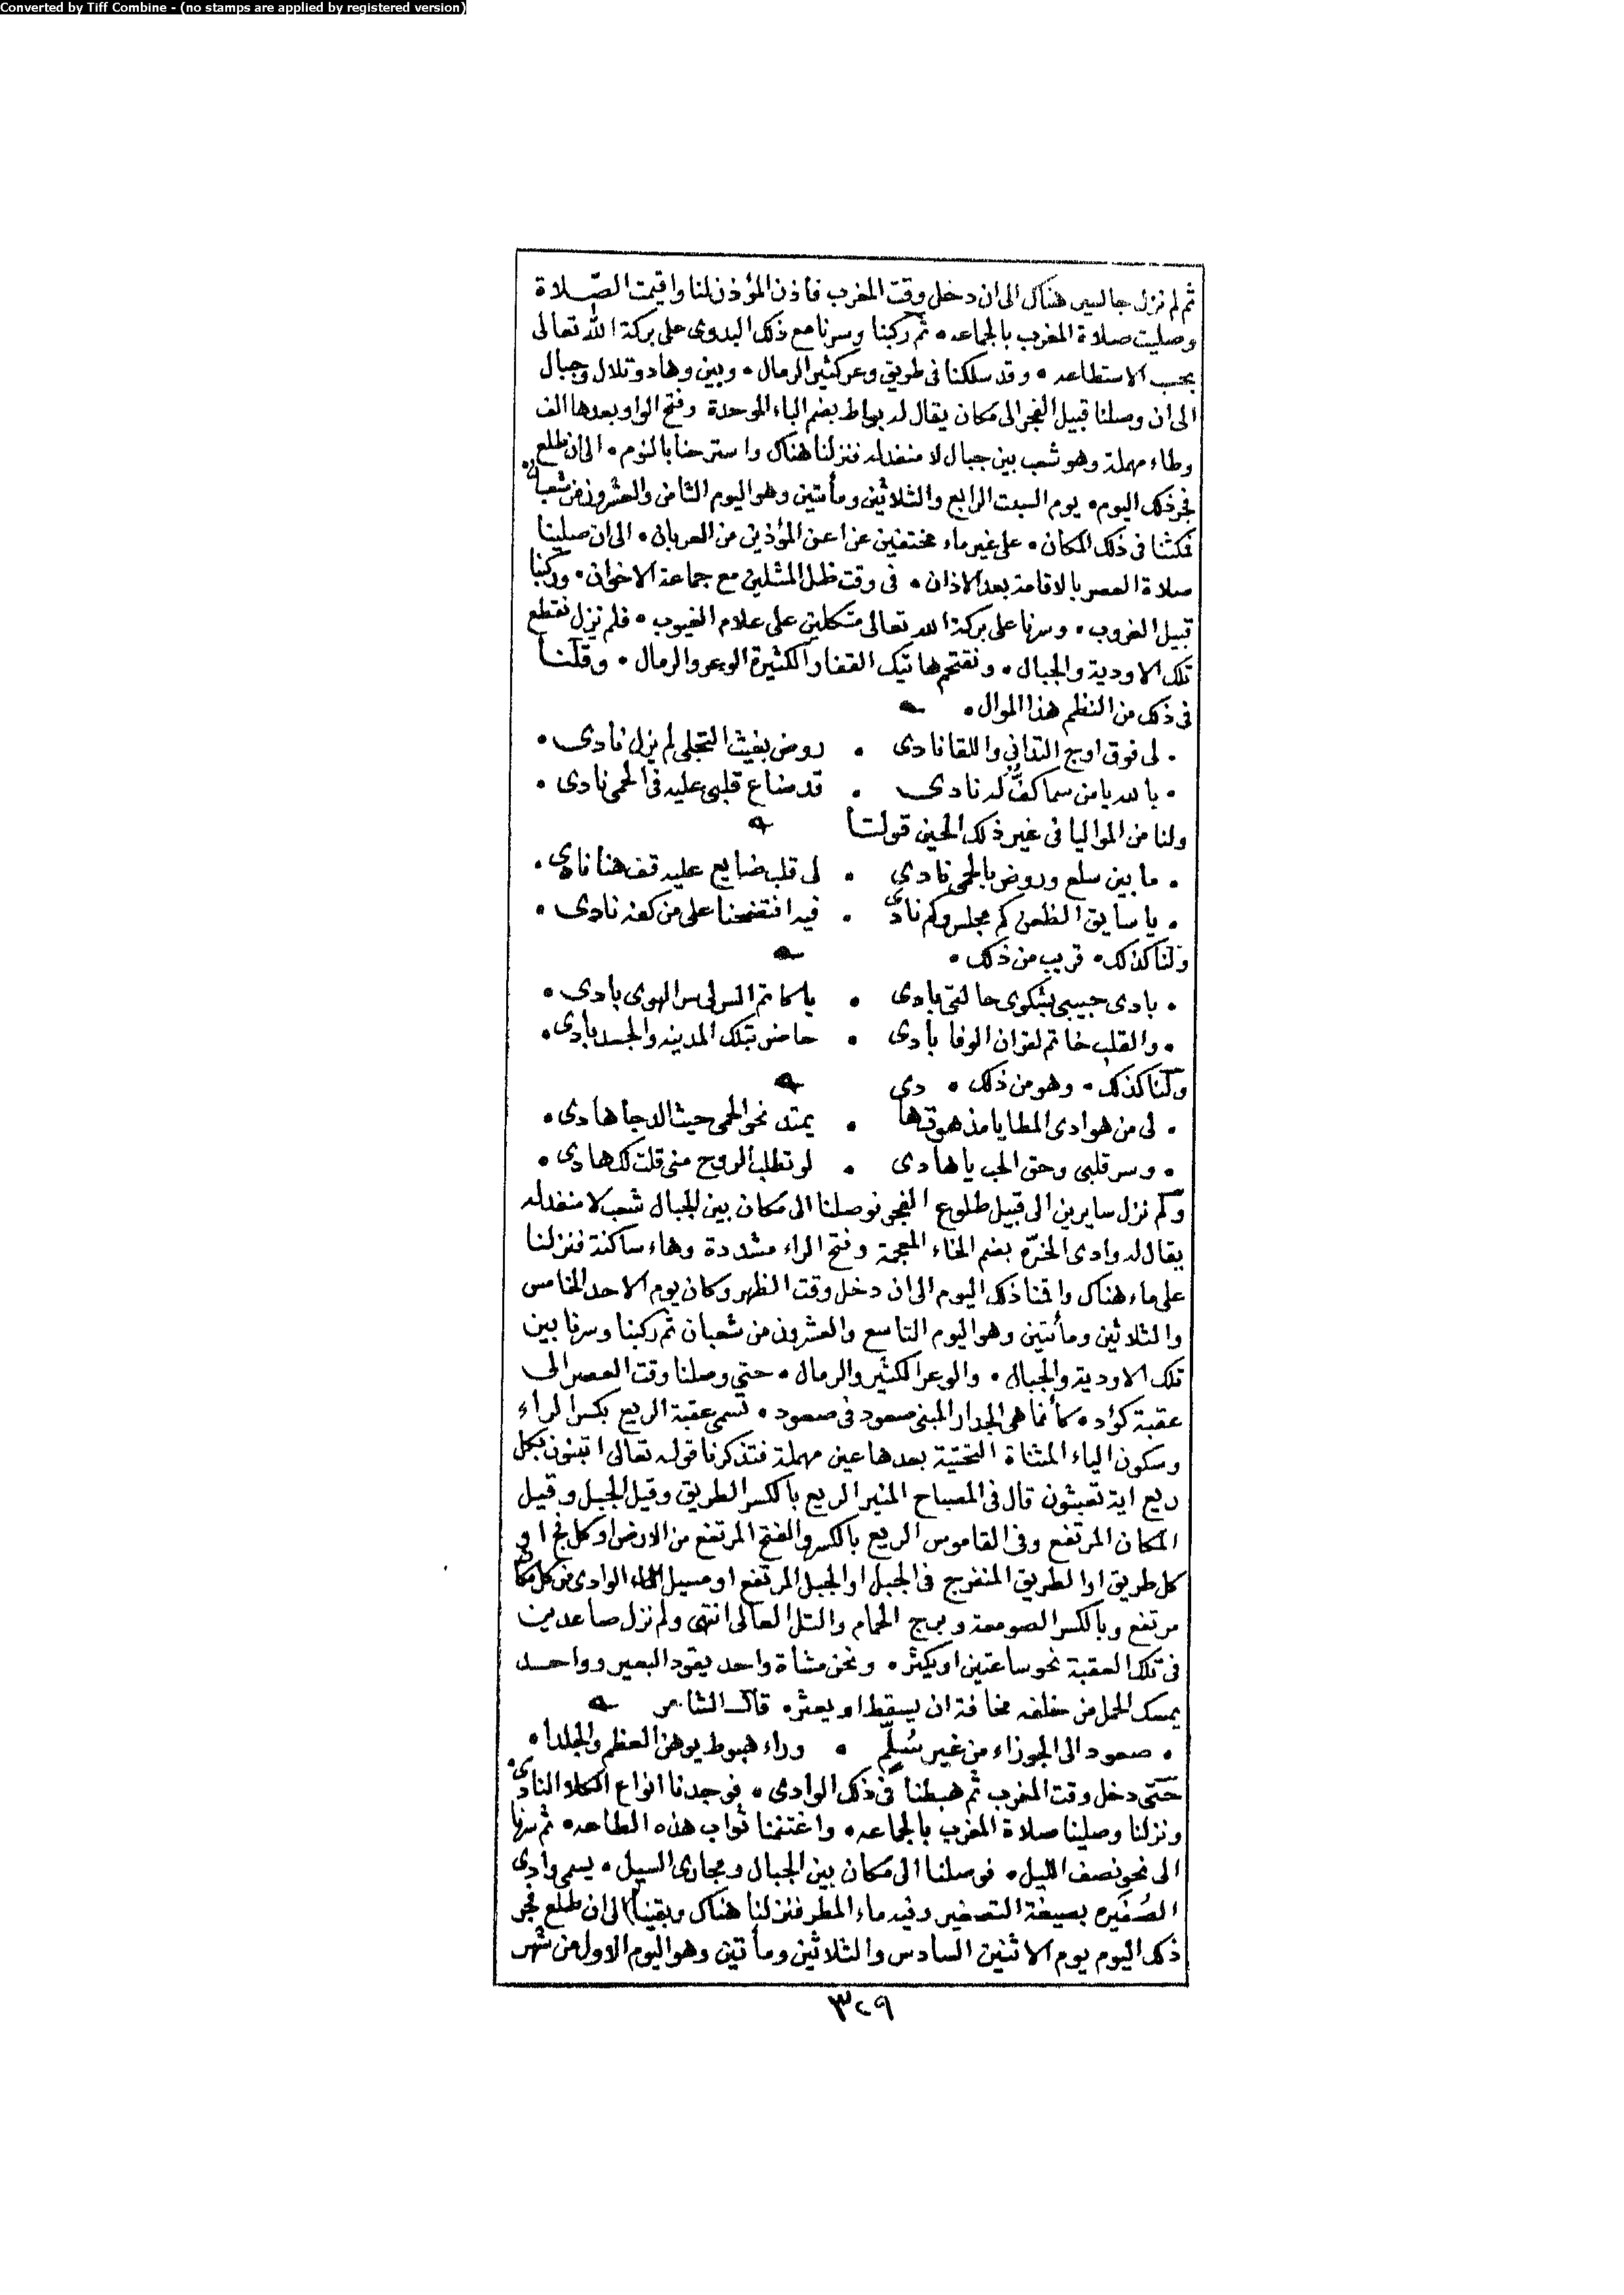 Converted by Tiff Combine - (no stamps are applied by registered version)
ثم لم نزل جالسين هناك الى ان دخل وقت المغرب فأذن المؤذن لنا واقيمت الصّلاة
وصليت صلاة المغرب بالجماعه • ثم ركبنا وسرنا مع ذلك البدوى على بركة الله تعالى
بحسب الاستطاعه • وقد سلكنا فى طريق وعر كثير الرمال • وبين وهاد وتلال وجبال
الى ان وصلنا قبيل الفجر الى مكان يقال له بواط بضم الباء الموحدة وفتح الواو بعدها الف
وطاء مهملة وهو شعب بين جبال لا منفذ له فنزلنا هناك واسترحنا بالنوم • الى ان طلع
فجر ذلك اليوم • يوم السبت الرابع والثلاثين ومأتين وهو اليوم الثامن والعشرون من شعبان •
فمكثنا فى ذلك المكان • على غير ماء مختفين عن اعين المؤذين من العربان • الى ان صلينا
صلاة العصر بالاقامة بعد الاذان • فى وقت ظل المثلين مع جماعة الاخوان • وركبنا
قبيل الغروب • وسرنا على بركة الله تعالى متكلين على علام الغيوب • فلم نزل نقطع
تلك الاودية والجبال • ونقتحم هاتيك القفار الكثيرة الوعر والرمال • وقلنا
فى ذلك من النظم هذا الموال •
• لى فوق اوج التدانى واللقا نادى • روض بغيث التجلى لم يزل نادى •
• بالله يا من سما كفٌّ له نادى • قد ضاع قلبى عليه فى الحمى نادى •
ولنا من المواليا فى غير ذلك الحين قولنا
• ما بين سلع وروض بالحمى نادى • لى قلب ضايع عليه قف هنا نادى •
• يا سايق الظعن كم مجلس وكم نادى • فيه افتضحنا على من كفه نادى •
ولنا كذلك • قريب من ذلك •
• بادى حبيبى بشكوى حالتى بادى • يا كاتم السر لى سر الهوى بادى •
• والقلب خاتم لغزان الوفا بادى • حاضر بتلك المدينه والجسد بادى •
ولنا كذلك • وهو من ذلك • دى
• لى من هوادى المطايا مذ هوتها • يمتد نحو الحمى حيث الدجا هادى •
• وسر قلبى وحق الحب يا هادى • لو تطلب الروح منى قلت لك هادى •
ولم نزل سايرين الى قبيل طلوع الفجر فوصلنا الى مكان بين الجبال شعب لا منفذ له
يقال له وادى الخرّه بضم الخاء المعجمة وفتح الراء مشددة وهاء ساكنة فنزلنا
على ماء هناك واقمنا ذلك اليوم الى ان دخل وقت الظهر وكان يوم الاحد الخامس
والثلاثين ومأتين وهو اليوم التاسع والعشرون من شعبان ثم ركبنا وسرنا بين
تلك الاودية والجبال • والوعر الكثير والرمال • حتى وصلنا وقت العصر الى
عقبة كؤد • كأنما هى الجدار المبنى صعود فى صعود • تسمى عقبة الريع بكسر الراء
وسكون الياء المثناة التحتيّة بعدها عين مهملة فتذكرنا قوله تعالى اتبنون بكل
ريع اية تعبثون قال فى المصباح المنير الريع بالكسر الطريق وقيل الجبل وقيل
المكان المرتفع وفى القاموس الريع بالكسر والفتح المرتفع من الارض او كل فج او
كل طريق او الطريق المنفرج فى الجبل او الجبل المرتفع او مسيل الماء الوادى من كل مكان
مرتفع وبالكسر الصومعة وبرج الحمام والتل العالى انتهى ولم نزل صاعدين
فى تلك العقبة نحو ساعتين او يكثر • ونحن مشاة واحد يقود البعير وواحد
يمسك الحمل من خلفه مخافة ان يسقط او يعثر • قال الشاعر
• صعود الى الجوزاء من غير سُلّمٍ • وراء هبوط يوهن العظم والجلدا •
حتّى دخل وقت المغرب ثم هبطنا فى ذلك الوادى • فوجدنا انواع الكلاء النادى •
ونزلنا وصلينا صلاة المغرب بالجماعه • واغتنمنا ثواب هذه الطاعه • ثم سرنا
الى نحو نصف الليل • فوصلنا الى مكان بين الجبال ومجارى السيل • يسمى وادى
الصُغَيره بصيغة التصغير وفيه ماء المطر فنزلنا هناك وبقينا الى ان طلع فجر
ذلك اليوم يوم الاثنين السادس والثلاثين ومأتين وهو اليوم الاول من شهر
٣٢٩